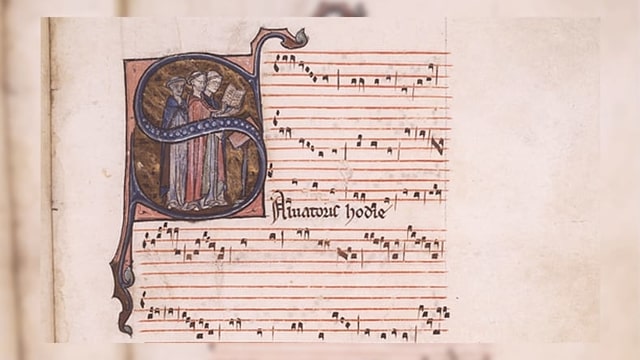 SAluatoris hodie